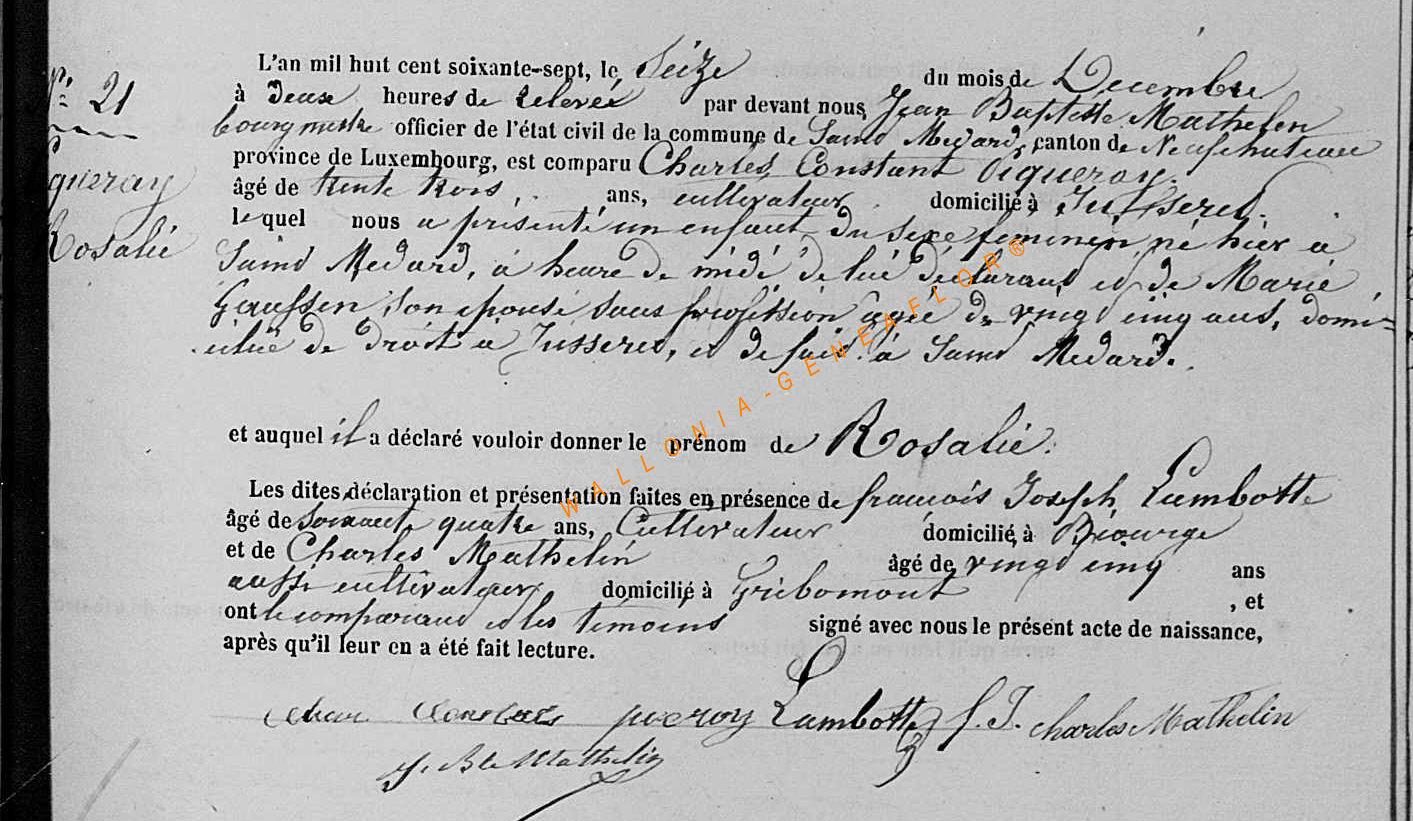 N° 21
queray
Rosalie
L'an mil huit cent soixante-sept, le Seize du mois de Decembre
à Deux heures de relevée par devant nous Jean Baptiste Mathelin
bourgmestre officier de l'état civil de la commune de Saind Médard, canton de Neufchateau
province de Luxembourg, est comparu Charles Constant Piqueray.
âgé de trente trois ans, cultivateur domicilié à Jusseret.
le quel nous a présenté un enfant du sexe feminin né hier a
Saind Médard, à heure de midi de lui déclarant et de Marie
son épouse sans profession agée de vingt cinq ans, domi=
ciliée de droit a Jusseret, et de fait à Saind Médard.
et auquel il a déclaré vouloir donner le prénom de Rosalie.
Les dites déclaration et présentation faites en présence de françois Joseph Lambotte
âgé de soixante quatre ans, Cultivateur domicilié à Biourge
et de Charles Mathelin âgé de vingt cinq ans
aussi cultivateur domicilié à Gribomont , et
ont le comparant et les témoins signé avec nous le présent acte de naissance,
après qu'il leur en a été fait lecture.
Lambotte f. J. charles Mathelin
J. Bte Mathelin
WALLONIA-GENEAFLOR®